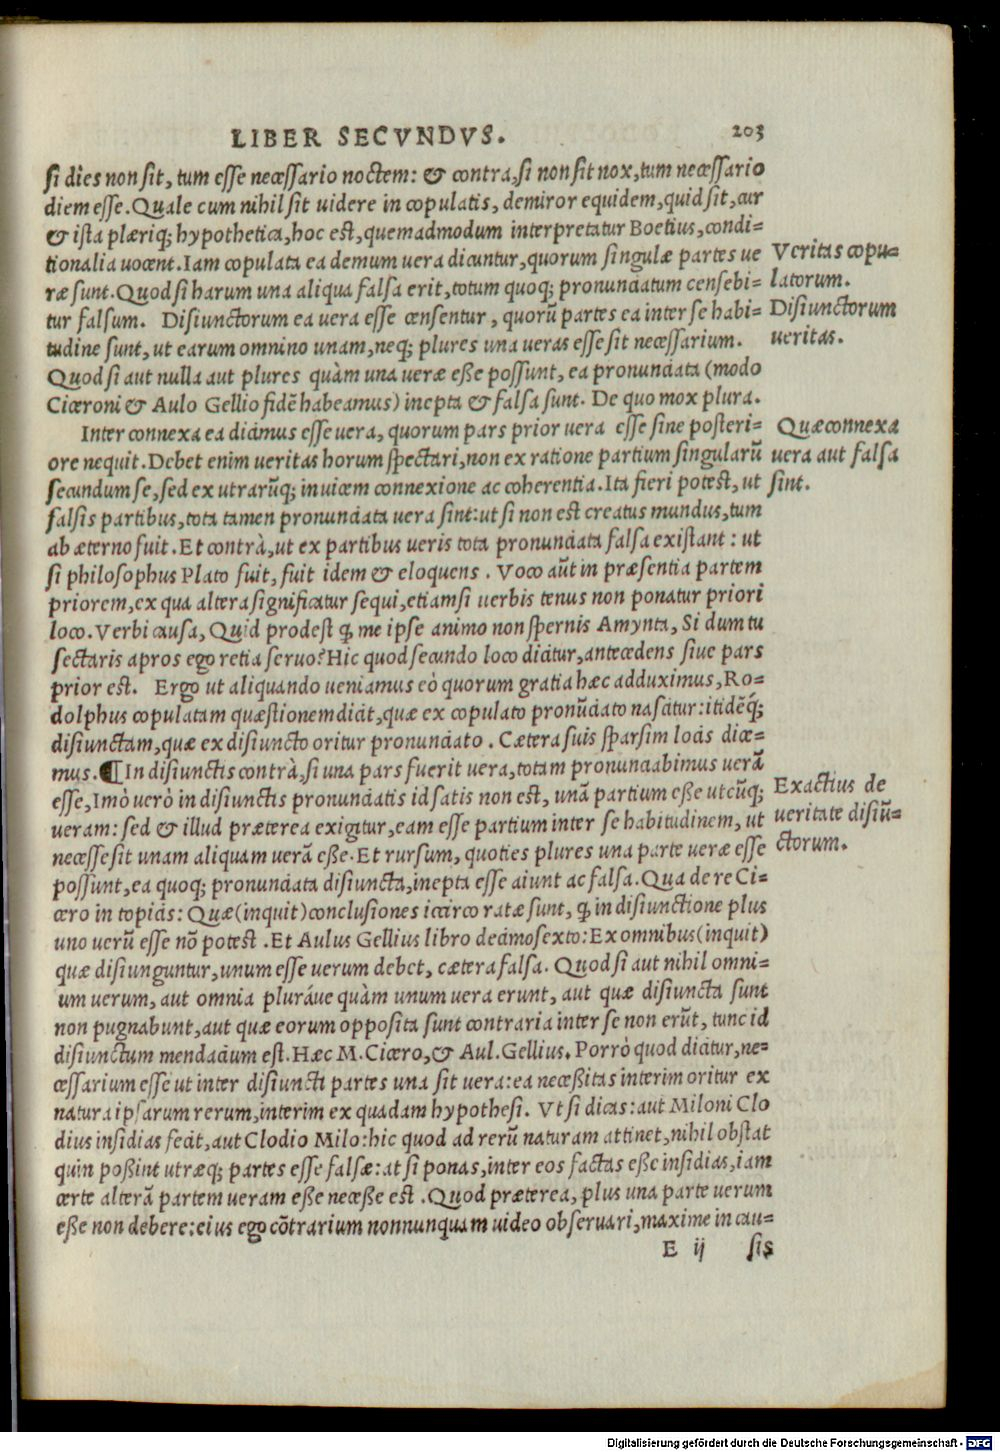 LIBER SECVNDVS. 203
si dies non sit, tum esse necessario noctem: & contra, si non sit nox, tum necessario
diem esse. Quale cum nihil sit uidere in copulatis, demiror equidem, quid sit, cur
& ista plæriq; hypothetica, hoc est, quemadmodum interpretatur Boetius, condi-
tionalia uocent. Iam copulata ea demum uera dicuntur, quorum singulæ partes ue
ræ sunt. Quod si harum una aliqua falsa erit, totum quoq; pronunciatum censebi-
tur falsum. Disiunctorum ea uera esse censentur, quorũ partes ea inter se habi-
tudine sunt, ut earum omnino unam, neq; plures una ueras esse sit necessarium.
Quod si aut nulla aut plures quàm una ueræ eße possunt, ea pronunciata (modo
Ciceroni & Aulo Gellio fidẽ habeamus) inepta & falsa sunt. De quo mox plura.
Veritas copu-
latorum.
Disiunctorum
ueritas.
Inter connexa ea dicimus esse uera, quorum pars prior uera esse sine posteri-
ore nequit. Debet enim ueritas horum spectari, non ex ratione partium singularũ
secundum se, sed ex utrarũq; inuicem connexione ac coherentia. Ita fieri potest, ut
falsis partibus, tota tamen pronunciata uera sint: ut si non est creatus mundus, tum
ab æterno fuit. Et contrà, ut ex partibus ueris tota pronunciata falsa existant: ut
si philosophus Plato fuit, fuit idem & eloquens. Voco aũt in præsentia partem
priorem, ex qua altera significatur sequi, etiamsi uerbis tenus non ponatur priori
loco. Verbi causa, Quid prodest q̃ me ipse animo non spernis Amynta, Si dum tu
sectaris apros ego retia seruo? Hic quod secundo loco dicitur, antecedens siue pars
prior est. Ergo ut aliquando ueniamus eò quorum gratia hæc adduximus, Ro-
dolphus copulatam quæstionem dicit, quæ ex copulato pronũciato nascitur: itidẽq́;
disiunctam, quæ ex disiuncto oritur pronunciato. Cætera suis sparsim locis dice-
mus. ¶ In disiunctis contrà, si una pars fuerit uera, totam pronunciabimus uerã
esse, Imò uerò in disiunctis pronunciatis id satis non est, unã partium eße utcũq;
ueram: sed & illud præterea exigitur, eam esse partium inter se habitudinem, ut
necesse sit unam aliquam uerã eße. Et rursum, quoties plures una parte ueræ esse
possunt, ea quoq; pronunciata disiuncta, inepta esse aiunt ac falsa. Qua de re Ci-
cero in topicis: Quæ (inquit) conclusiones iccirco ratæ sunt, q̃ in disiunctione plus
uno uerũ esse nõ potest. Et Aulus Gellius libro decimosexto: Ex omnibus (inquit)
quæ disiunguntur, unum esse uerum debet, cætera falsa. Quod si aut nihil omni-
um uerum, aut omnia pluráue quàm unum uera erunt, aut quæ disiuncta sunt
non pugnabunt, aut quæ eorum opposita sunt contraria inter se non erũt, tunc id
disiunctum mendacium est. Hæc M. Cicero, & Aul. Gellius. Porrò quod dicitur, ne-
cessarium esse ut inter disiuncti partes una sit uera: ea neceßitas interim oritur ex
natura ipsarum rerum, interim ex quadam hypothesi. Vt si dicas: aut Miloni Clo
dius insidias fecit, aut Clodio Milo: hic quod ad rerũ naturam attinet, nihil obstat
quin poßint utræq; partes esse falsæ: at si ponas, inter eos factas eße insidias, iam
certe alterã partem ueram eße neceße est. Quod præterea, plus una parte uerum
eße non debere: eius ego cõtrarium nonnunquam uideo obseruari, maxime in cau-
Quæ connexa
uera aut falsa
sint.
Exactius de
ueritate disiũ-
ctorum.
E ij sis
Digitalisierung gefördert durch die Deutsche Forschungsgemeinschaft - DFG